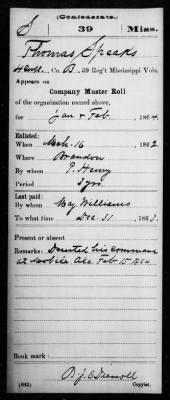 (Confederate.)
S 39 Miss.
Thomas Speaks
Co. B, 39 Reg't Mississippi Vols.
Appears on
Company Muster Roll
of the organization named above,
for Jan & Feb, 1864.
Enlisted:
When Mch. 16, 1862
Where Brandon
By whom P. Henry
Period 3 yrs.
Last paid:
By whom Maj. Williams
To what time Dec. 31, 1863.
Present or absent
Remarks: Deserted his command
at Mobile Ala Feb 15" 1864.
Book mark:
(642) Copyist.